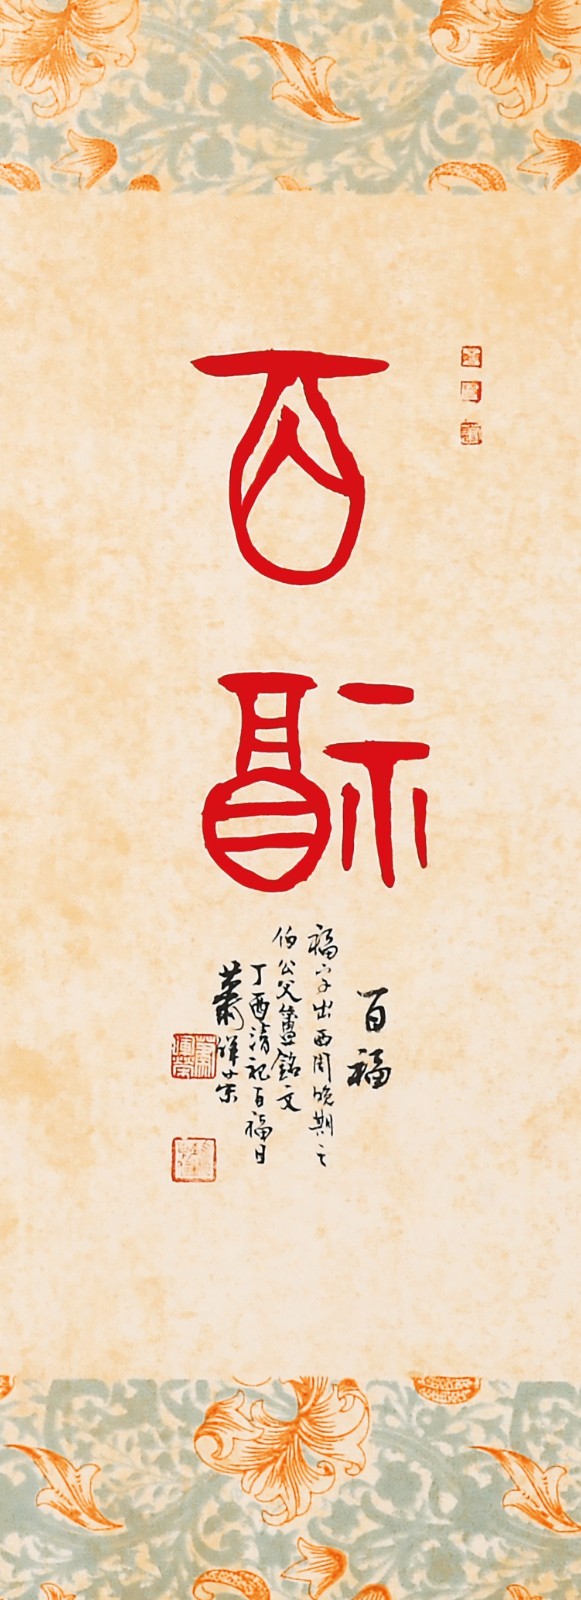 百福
百福
福字出西周晚期之
伯公父簠銘文
丁酉清祀百福日
蕭